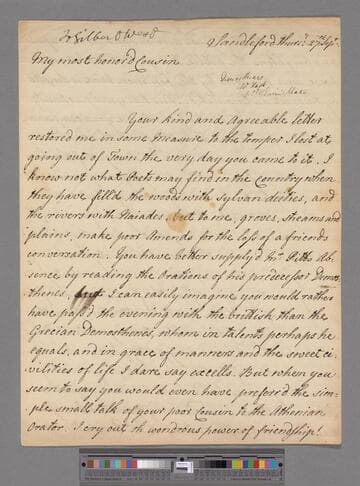 To Gilbert West
Sandleford thurs: 27th Sept:
My most honor'd Cousin
Demosthenes
Mr Pitt
Your kind and Agreeable letter
restored me in some measure to the temper I lost at
going out of Town the very day you came to it. I
know not what Poets may find in the Country when
they have filld the woods with sylvan deities, and
the rivers with Naiades, but to me, groves, streams and
plains, make poor Amends for the loss of a friends
conversation. You have better supply'd Mr Pitts Ab:
sence by reading the Orations of his predecessor Demos
thenes, but I can easily imagine you would rather
have pass'd the evening with the british than the
Grecian Demosthenes, whom in talents perhaps he
equals, and in grace of manners and the sweet ci:
vilities of life I dare say excells. But when you
seem to say you would even have prefer'd the sim:
ple small talk of your poor Cousin to the Athenian
Orator. I cry out oh wondrous power of friendship!